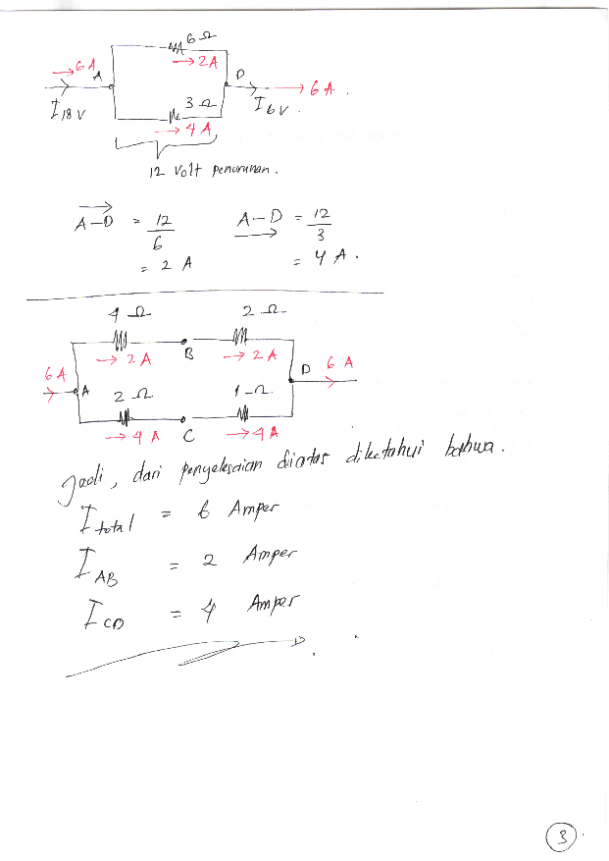 6 Ω
6 A
A
2 A
D
6 A.
I 18 V
3 Ω
I 6 V.
4 A
12 Volt penurunan.
A-D = 12/6 A-D = 12/3
= 2 A = 4 A.
4 Ω 2 Ω
2 A B 2 A
6 A A D 6 A
2 Ω 1 Ω
4 A C 4 A
Jadi, dari penyelesaian diatas diketahui bahwa.
I total = 6 Amper
I AB = 2 Amper
I CD = 4 Amper
3